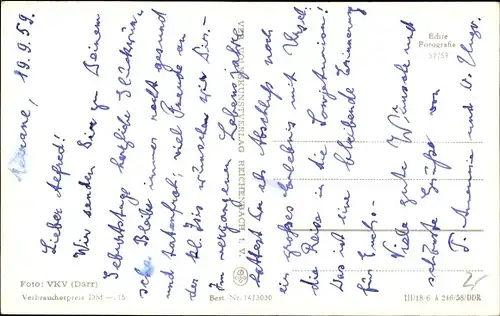 Meerane, 19.9.59.
Lieber Alfred!
Wir senden Dir zu Deinem
Geburtstage herzliche Glückwün-
sche. Bleibe immer recht gesund
und tatenfroh; viel Freude an
der kl. Iris wünschen wir Dir. -
Im vergangenen Lebensjahre
hattest Du als Abschluß noch
ein großes Erlebnis mit Ursel:
die Reise in die Sowjetunion!
Das ist eine bleibende Erinnerung
für Euch. -
Viele gute Wünsche und
schönste Grüße von
T. Annemie und O. Hugo.
VEB VOLKSKUNSTVERLAG REICHENBACH I. V.
Echte
Fotografie
Foto: VKV (Darr)
Verbraucherpreis DM -.15
Best.-Nr. 14J3020
III/18/6 A 246/58/DDR